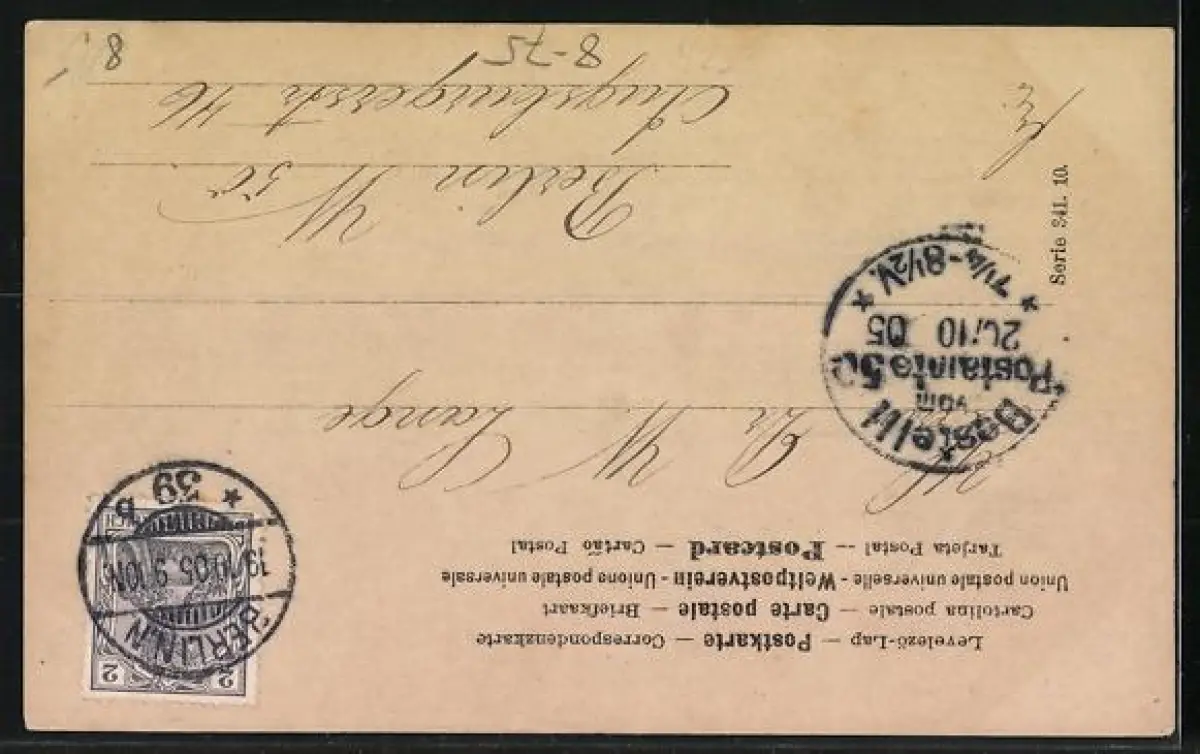 Levelező-Lap — Postkarte — Correspondenzkarte
Cartolina postale — Carte postale — Briefkaart
Union postale universelle - Weltpostverein - Unione postale universale
Tarjeta Postal -- Postcard — Cartão Postal
2 2
BERLIN. N
19 10 05. 9-10N.
* 39 b
W Lange
Bestellt
vom
Postamte 50
20/10 05
* 7¼-8½V. *
Berlin W 50.
Augsburgerstr 46
Serie 341. 10.
8-75
8